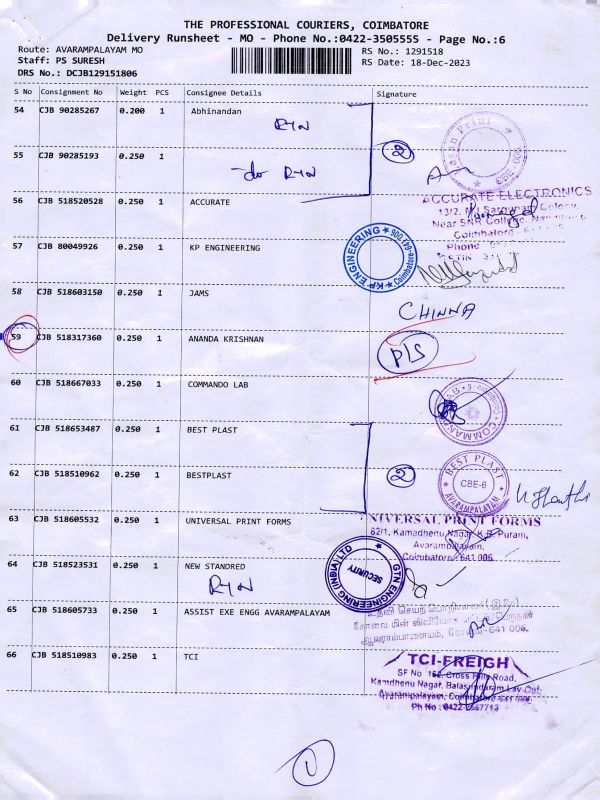 THE PROFESSIONAL COURIERS, COIMBATORE
Delivery Runsheet - MO - Phone No.:0422-3505555 - Page No.:6
Route: AVARAMPALAYAM MO
RS No.: 1291518
Staff: PS SURESH
RS Date: 18-Dec-2023
DRS No.: DCJB129151806
S No Consignment No Weight PCS Consignee Details Signature
54 CJB 90285267 0.200 1 Abhinandan
2
CBE-006
55 CJB 90285193 0.250 1
56 CJB 518520528 0.250 1 ACCURATE
ACCURATE ELECTRONICS
Near SNR College,
Coimbatore
Phone
57 CJB 80049926 0.250 1 KP ENGINEERING
KP ENGINEERING
Coimbatore-641 006
58 CJB 518603150 0.250 1 JAMS
CHINNA
59 CJB 518317360 0.250 1 ANANDA KRISHNAN
PLS
60 CJB 518667033 0.250 1 COMMANDO LAB
61 CJB 518653487 0.250 1 BEST PLAST
2
BEST PLAST
CBE-6
AVARAMPALAYAM
62 CJB 518510962 0.250 1 BESTPLAST
63 CJB 518605532 0.250 1 UNIVERSAL PRINT FORMS
NIVERSAL PRINT FORMS
82/1, Kamadhenu Nagar, K.R. Puram,
Avarampalayam,
Coimbatore - 641 006
64 CJB 518523531 0.250 1 NEW STANDRED
GTN ENGINEERING (INDIA) LTD
SECURITY
65 CJB 518605733 0.250 1 ASSIST EXE ENGG AVARAMPALAYAM
66 CJB 518510983 0.250 1 TCI
TCI-FREIGH
SF No Cross Road,
Kamdhenu Nagar, Balasundaram Lay-Out,
Avarampalayam, Coimbatore
Ph No : 0422
1